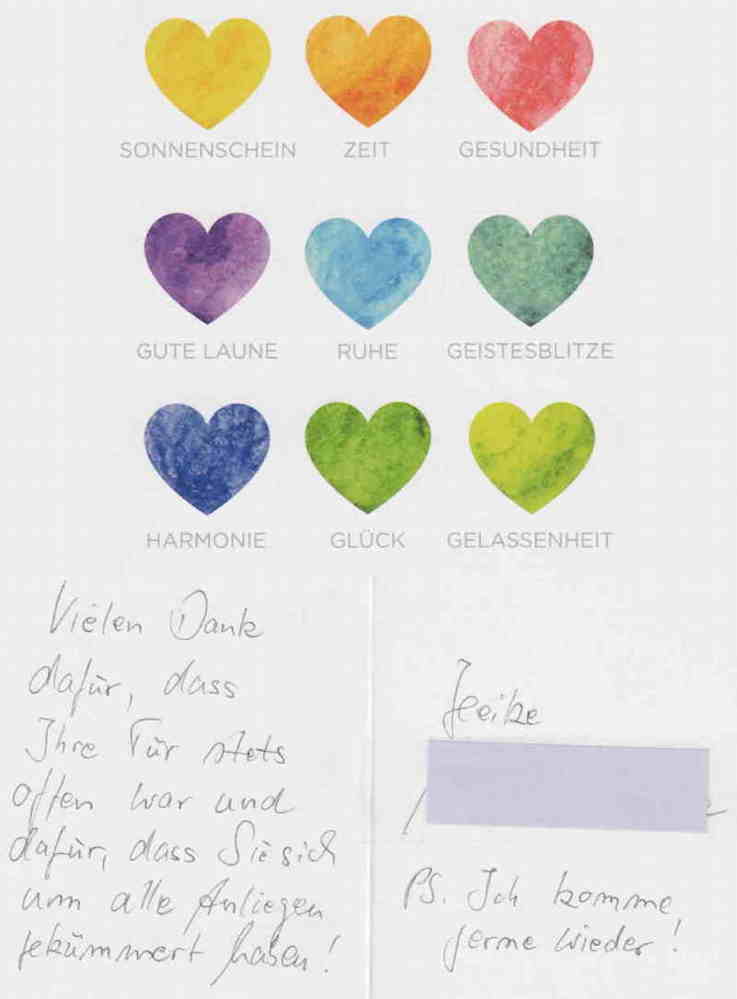 SONNENSCHEIN ZEIT GESUNDHEIT
GUTE LAUNE RUHE GEISTESBLITZE
HARMONIE GLÜCK GELASSENHEIT
Vielen Dank
dafür, dass
Ihre Tür stets
offen war und
dafür, dass Sie sich
um alle Anliegen
gekümmert haben!
PS. Ich komme
gerne wieder!